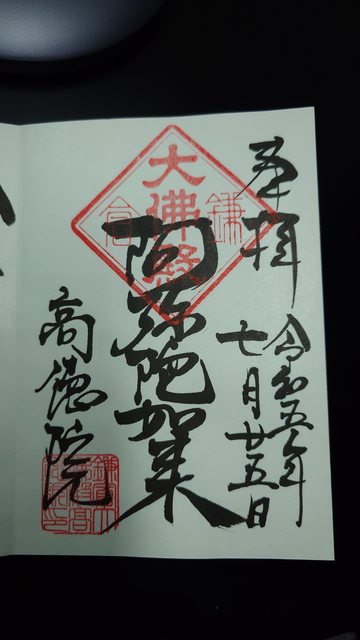 奉拝
令和五年
七月廿五日
大佛殿
鎌
倉
阿弥陀如来
高徳院